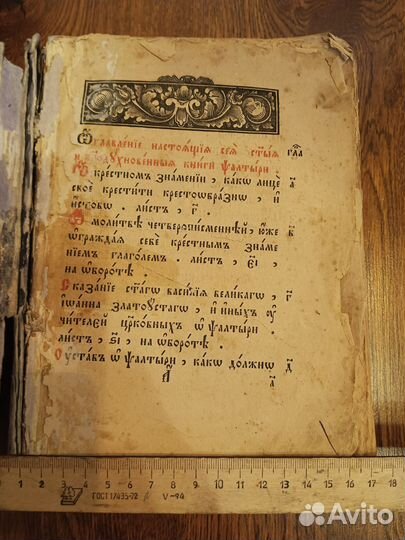 Ѡ҆главле́нїе настоѧ́щїѧ сеѧ̀ ст҃ы́ѧ гла҃
и҆ бг҃одꙋхнове́нныѧ кни́ги ѱалты́ри
Ѡ҆ кре́стномъ зна́менїи, ка́кѡ лицѐ а҃
своѐ крести́ти крестоѡбра́знѡ, и҆
и҆́стовѡ. ли́стъ, г҃.
Ѡ҆ моли́твѣ четверописме́ннѣй, ю҆́же в҃
ѡ҆гражда́ѧ себѐ кре́стнымъ зна́ме
нїемъ глаго́лемъ. ли́стъ, є҃і,
на ѡ҆боро́тѣ.
Сказа́нїе ст҃а́гѡ васи́лїѧ вели́кагѡ, г҃
і҆ѡа́нна златоꙋ́стагѡ, и҆ и҆ны́хъ ᲂу҆
чи́телей цр҃ко́вныхъ ѡ҆ ѱалты́ри.
ли́стъ, ѕ҃і, на ѡ҆боро́тѣ.
Оу҆ста́въ ѡ҆ ѱалты́ри, ка́кѡ до́лжнѡ д҃
а҃ а҃
1 2 3 4 5 6 7 8 9 10 11 12 13 14 15 16 17 18
ГОСТ 17435-72 V-94
Avito